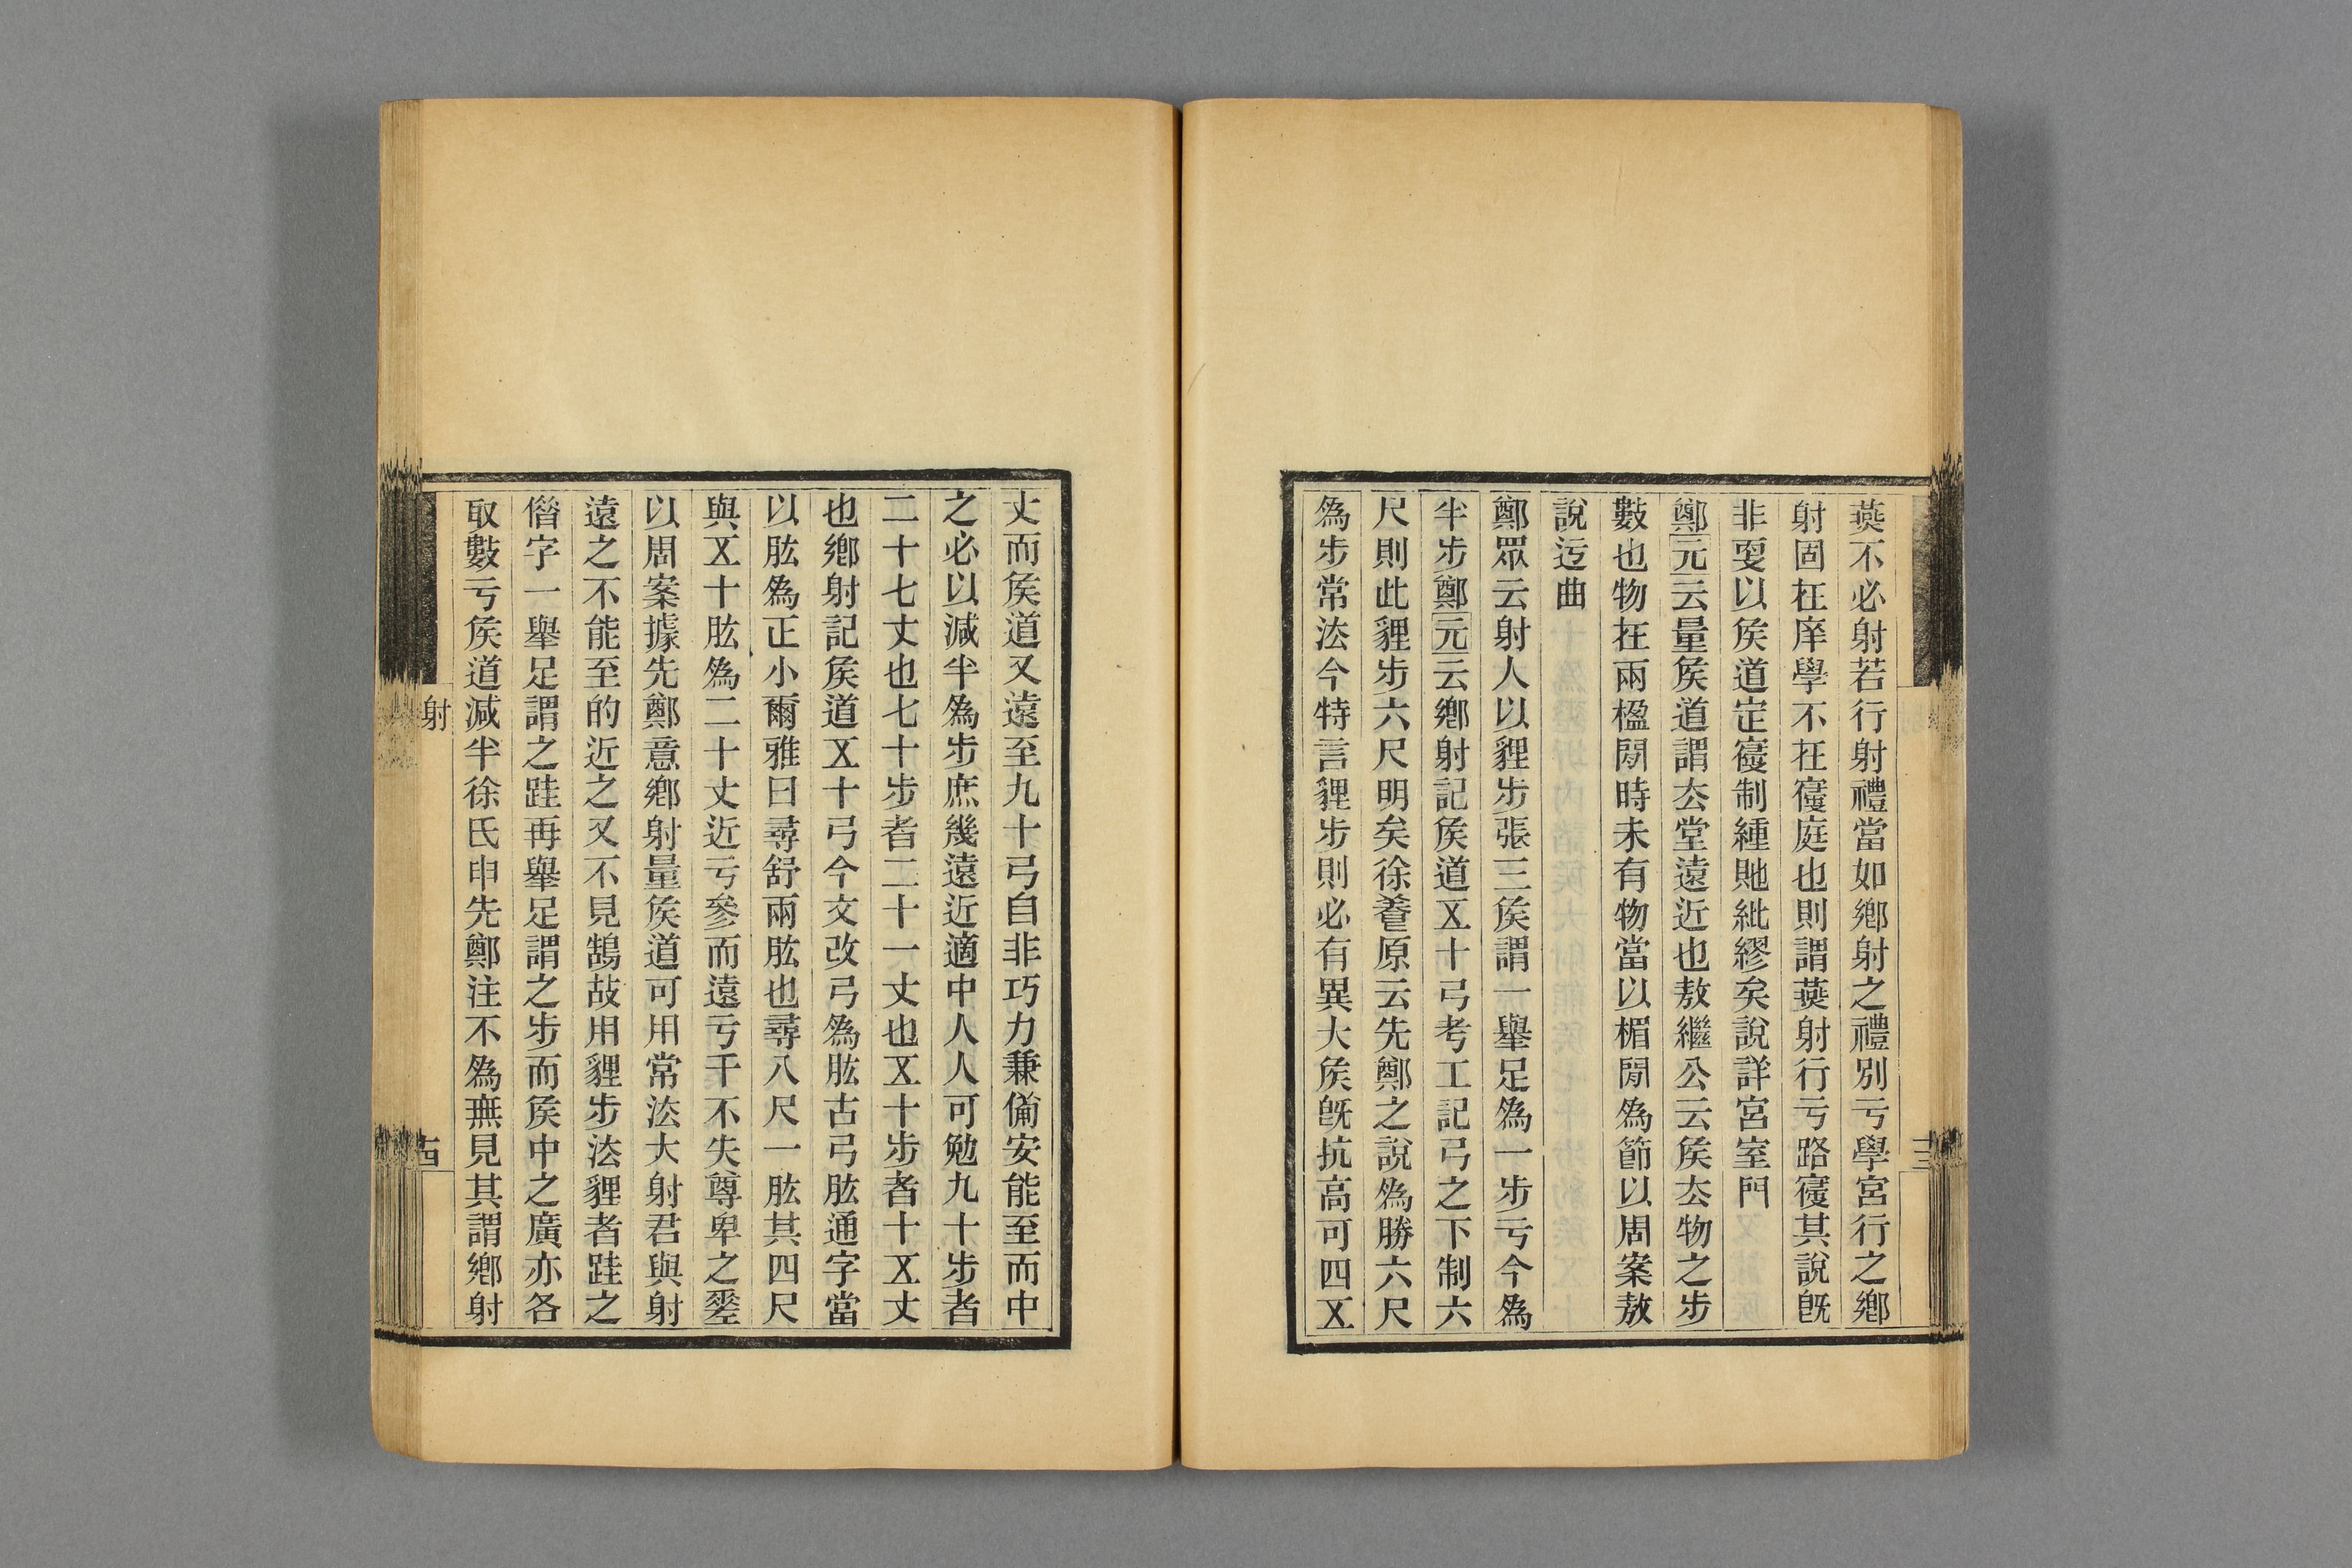 燕不必射若行射禮當如鄉射之禮別亏學宮行之鄉
射固在庠學不在寢庭也則謂燕射行亏路寢其說旣
非耍以矦道定寢制緟貤紕繆矣說詳宮室門
鄭元云量矦道謂去堂遠近也敖繼公云矦去物之步
數也物在兩楹閒時未有物當以楣閒為節以周案敖
說迃曲
鄭眾云射人以貍步張三矦謂一舉足為一步亏今為
半步鄭元云鄉射記矦道㐅十弓考工記弓之下制六
尺則此貍步六尺明矣徐養原云先鄭之說為勝六尺
為步常法今特言貍步則必有異大矦旣抗高可四㐅
丈而矦道又遠至九十弓自非巧力兼僃安能至而中
之必以減半為步庶幾遠近適中人人可勉九十步者
二十七丈也七十步者二十一丈也㐅十步者十㐅丈
也鄉射記矦道㐅十弓今文改弓為肱古弓肱通字當
以肱為正小爾雅曰尋舒兩肱也尋八尺一肱其四尺
與㐅十肱為二十丈近亏參而遠亏干不失尊卑之𡍮
以周案據先鄭意鄉射量矦道可用常法大射君與射
遠之不能至的近之又不見鵠故用貍步法貍者跬之
偕字一舉足謂之跬再舉足謂之步而矦中之廣亦各
取數亏矦道減半徐氏申先鄭注不為無見其謂鄉射
射
十三
十四